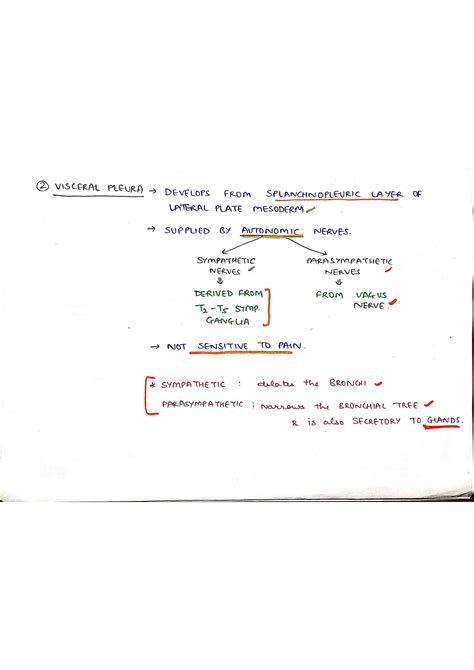 ② VISCERAL PLEURA → DEVELOPS FROM SPLANCHNOPLEURIC LAYER OF
LATERAL PLATE MESODERM
→ SUPPLIED BY AUTONOMIC NERVES.
SYMPATHETIC NERVES
PARASYMPATHETIC NERVES
DERIVED FROM T2-T5 SYMP. GANGLIA
FROM VAGUS NERVE.
→ NOT SENSITIVE TO PAIN.
* SYMPATHETIC : dilates the BRONCHI
PARASYMPATHETIC : narrows the BRONCHIAL TREE
& is also SECRETORY TO GLANDS.